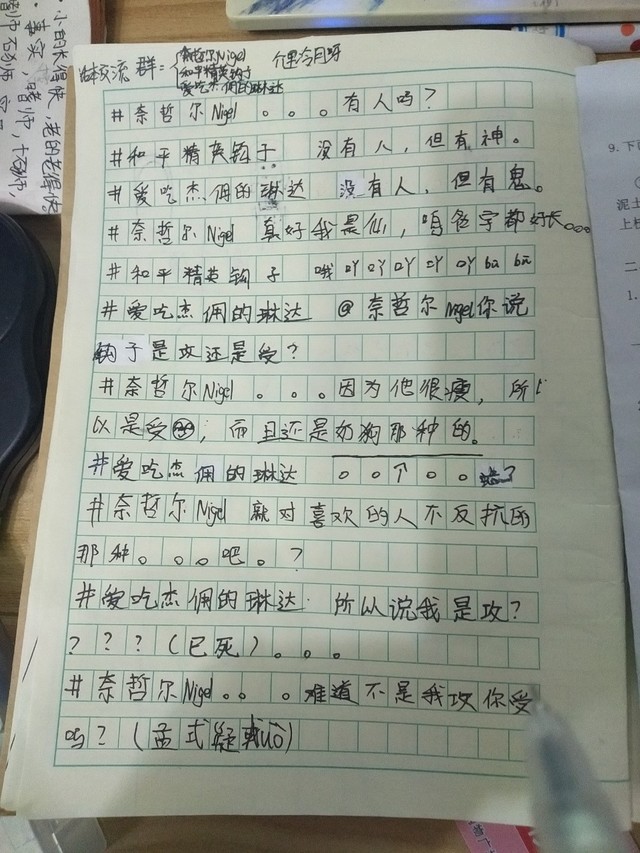 交流群=
奈哲尔Nigel
和平精英钩子
爱吃杰佣的琳达
#奈哲尔Nigel 。。。有人吗?
#和平精英钩子 没有人,但有神。
#爱吃杰佣的琳达 没有人,但有鬼。
#奈哲尔Nigel 真好我是仙,鸣名字都好长。。。
#和平精英钩子 哦吖吖吖吖吖ba ba
#爱吃杰佣的琳达 @奈哲尔Nigel你说
钩子是攻还是受?
#奈哲尔Nigel 。。。因为他很瘦,所
以是受,而且还是奶狗那种的。
#爱吃杰佣的琳达 。。↑。。
#奈哲尔Nigel 就对喜欢的人不反抗的
那种。。。吧。?
#爱吃杰佣的琳达 所以说我是攻?
???(已死)。。。
#奈哲尔Nigel。。。难道不是我攻你受
吗?(孟式疑惑)
9.下
泥土
上柱
二
1.